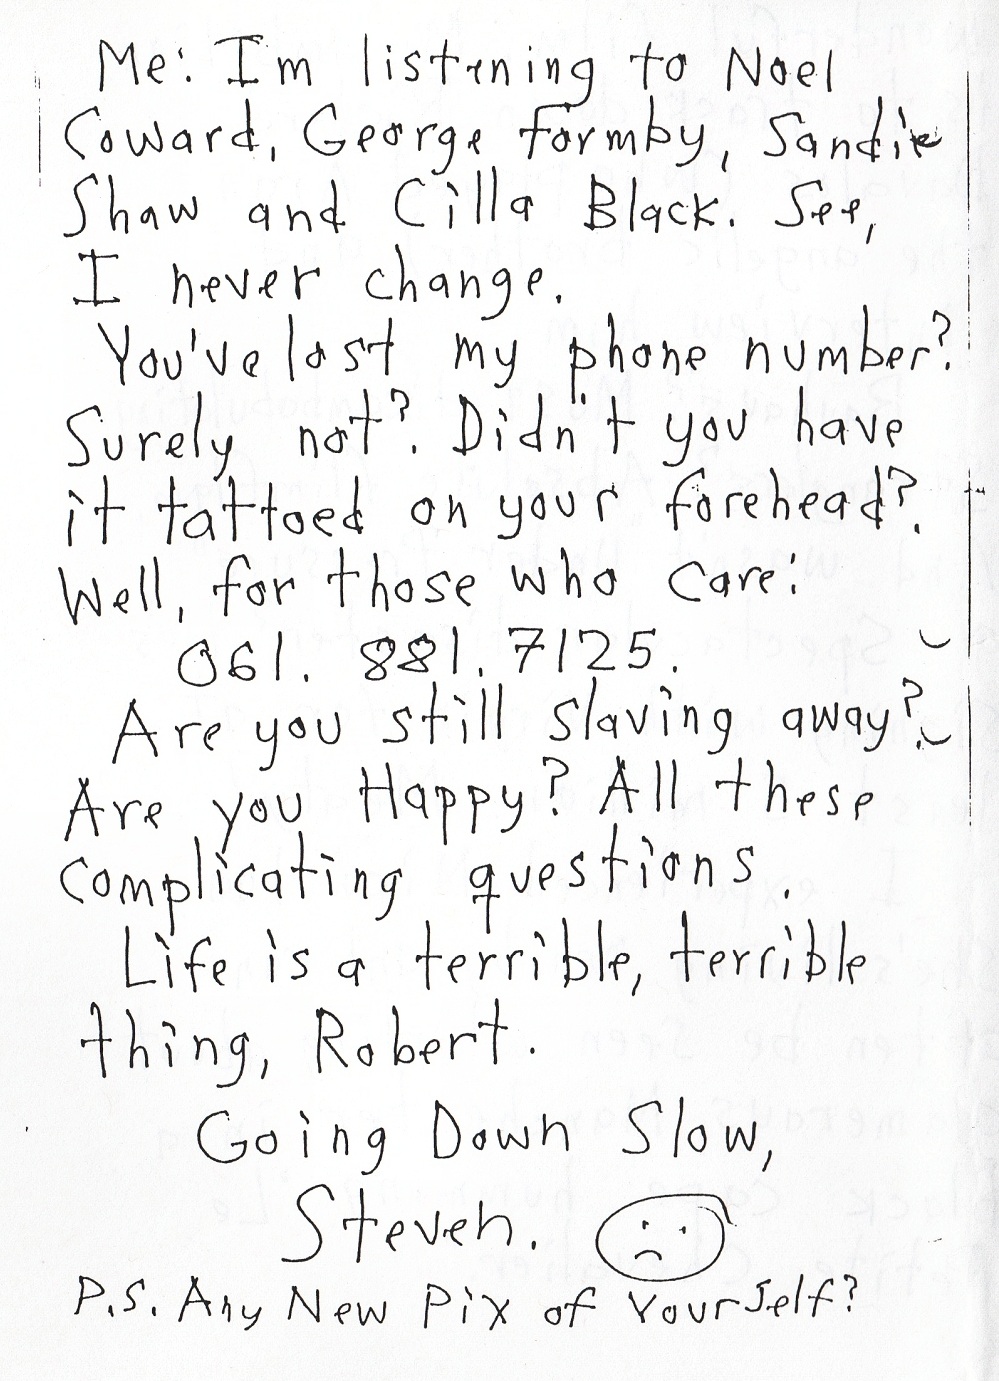 Me: I'm listening to Noel
Coward, George Formby, Sandie
Shaw and Cilla Black. See,
I never change.
You've lost my phone number?
Surely not? Didn't you have
it tattoed on your forehead?
Well, for those who care:
061. 881. 7125.
Are you still slaving away?
Are you Happy? All these
complicating questions.
Life is a terrible, terrible
thing, Robert.
Going Down Slow,
Steven.
P.S. Any New Pix of Yourself?